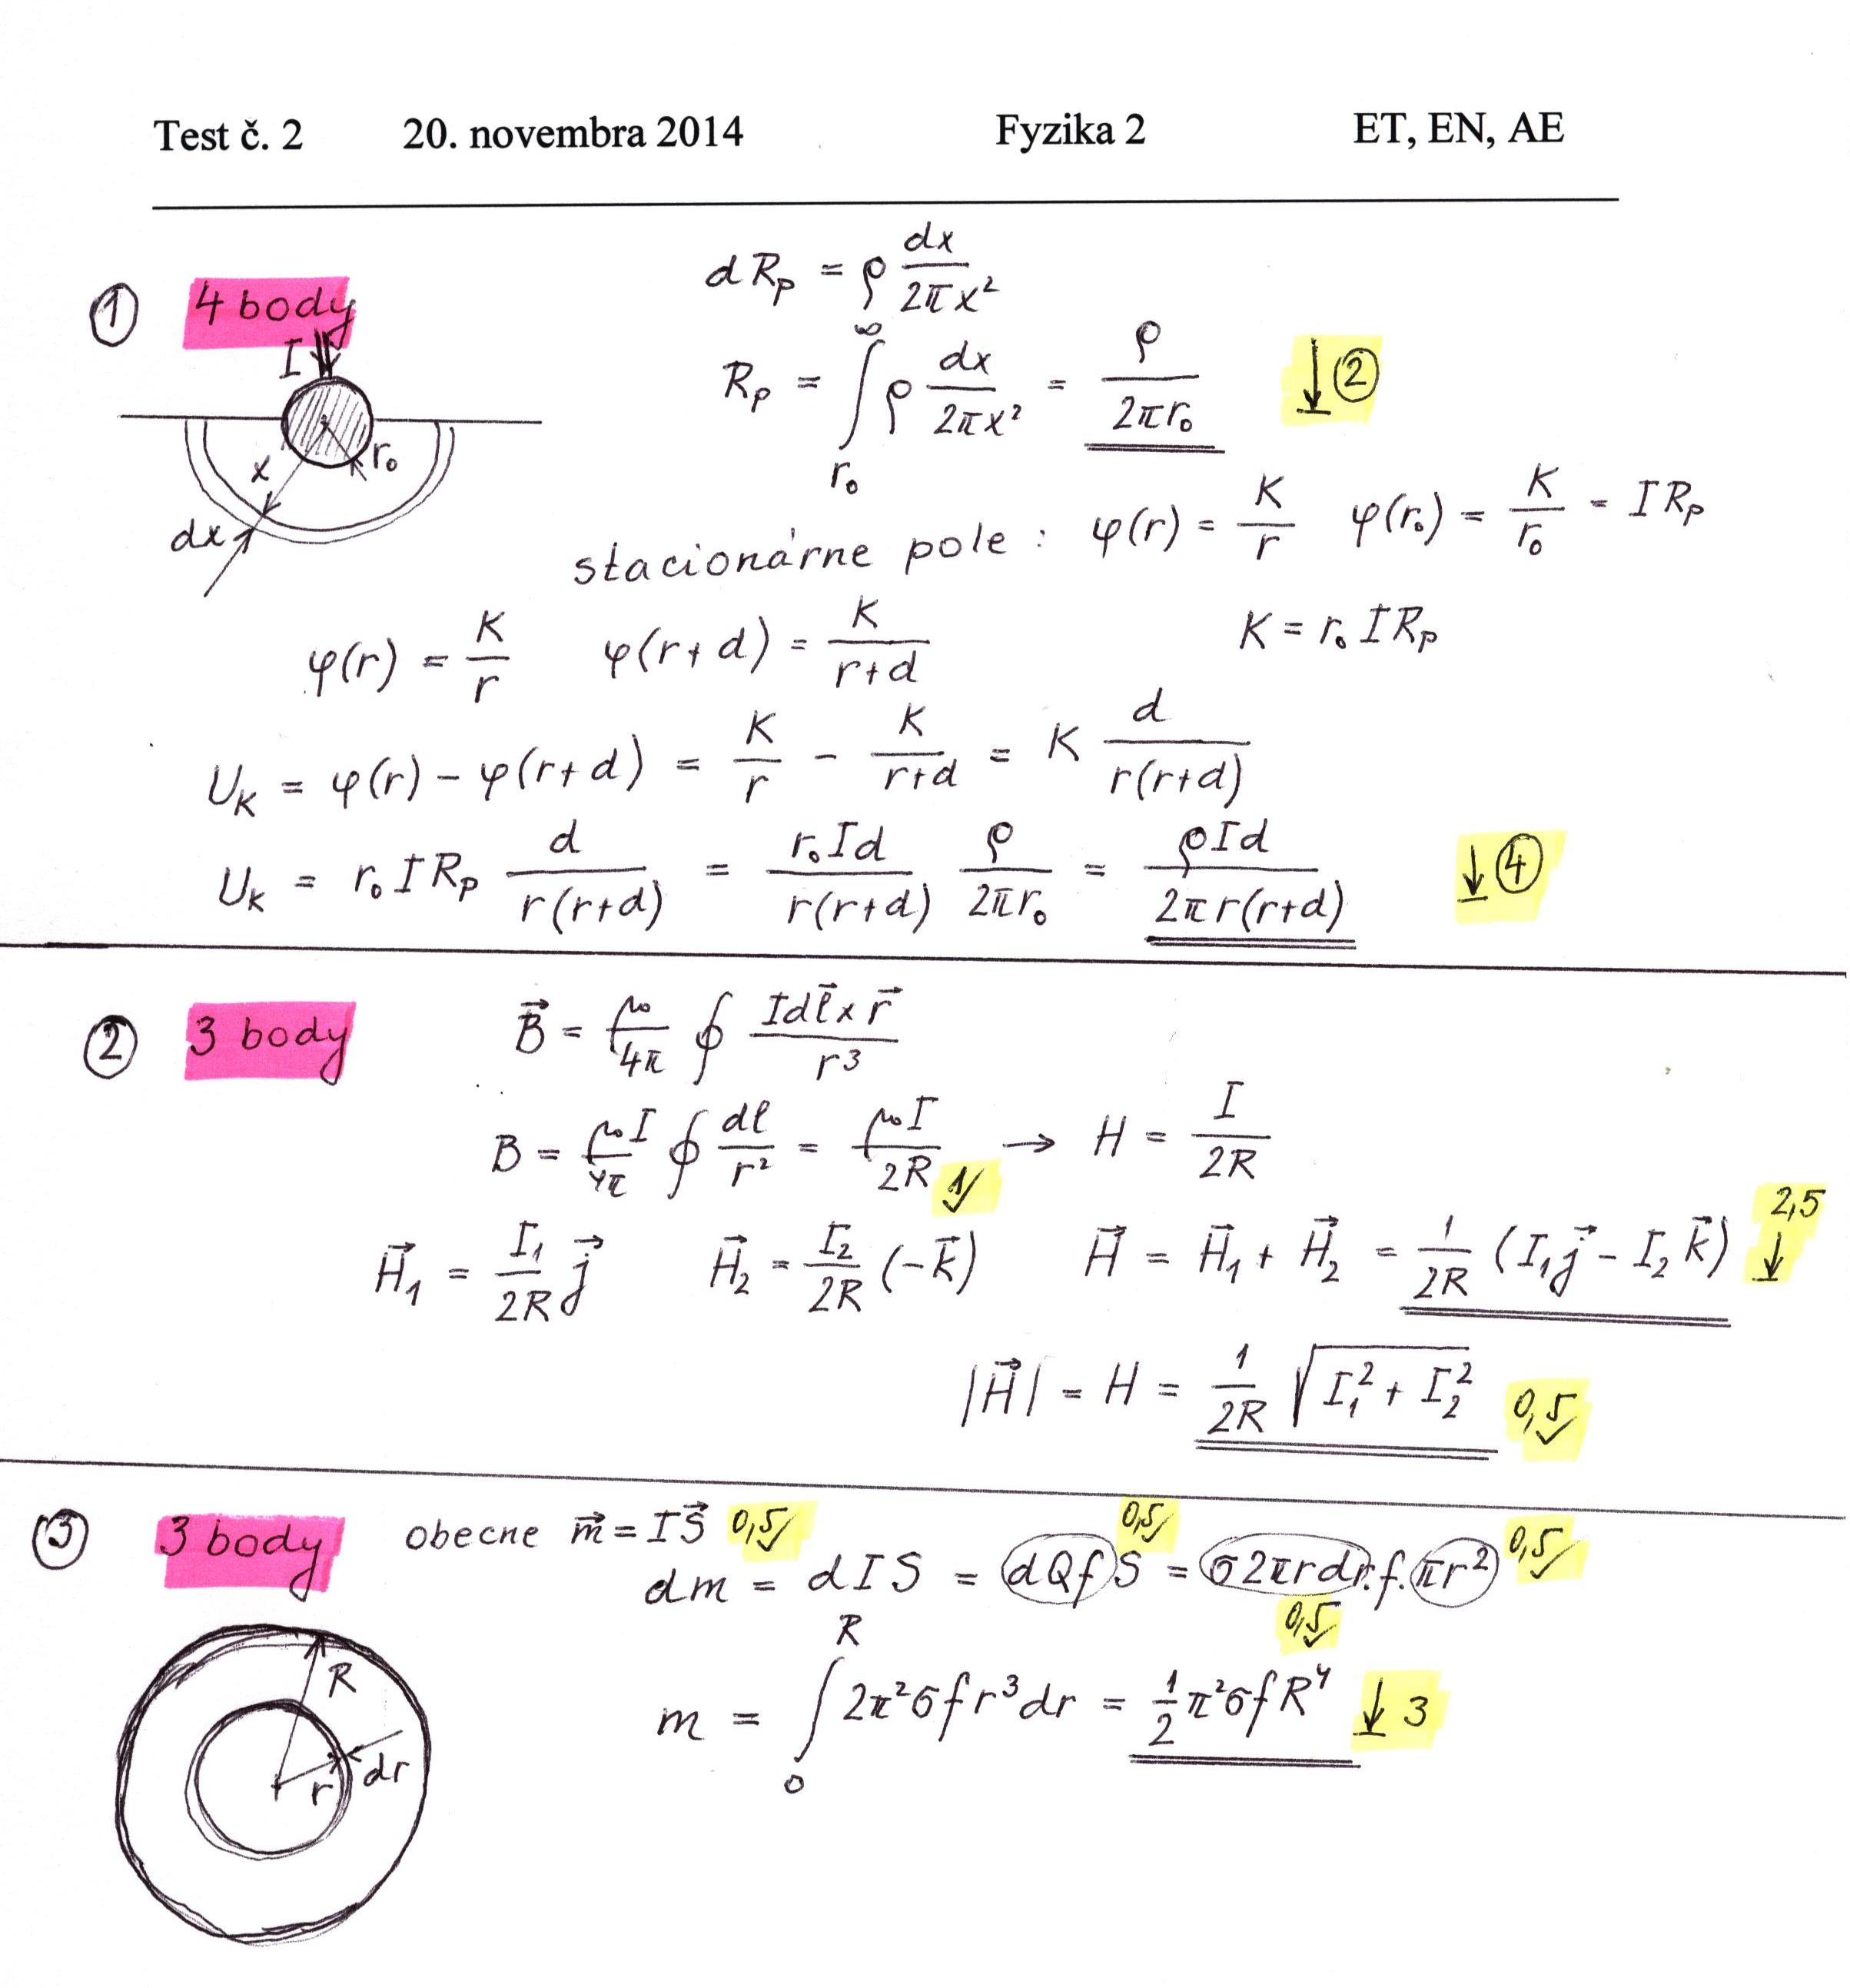 Test č. 2 20. novembra 2014 Fyzika 2 ET, EN, AE
① 4 body
I
x
r₀
dx
dRₚ = ρ dx/(2πx²)
Rₚ = ∫_{r₀}^{∞} ρ dx/(2πx²) = ρ/(2πr₀) ↓ ②
stacionárne pole : φ(r) = K/r φ(r₀) = K/r₀ = IRₚ
φ(r) = K/r φ(r+d) = K/(r+d) K = r₀IRₚ
U_K = φ(r) − φ(r+d) = K/r − K/(r+d) = K d/(r(r+d))
U_K = r₀IRₚ d/(r(r+d)) = r₀Id/(r(r+d)) ρ/(2πr₀) = ρId/(2πr(r+d)) ↓ ④
② 3 body
B⃗ = μ₀/4π ∮ Idl⃗×r⃗/r³
B = μ₀I/4π ∮ dl/r² = μ₀I/2R 1✓ → H = I/2R
H⃗₁ = I₁/2R j⃗ H⃗₂ = I₂/2R (−k⃗) H⃗ = H⃗₁ + H⃗₂ = 1/2R (I₁j⃗ − I₂k⃗) 2,5 ↓
|H⃗| = H = 1/2R √(I₁² + I₂²) 0,5✓
③ 3 body obecne m⃗ = IS⃗ 0,5✓
dm = dIS = dQf S = σ2πrdr.f.πr² 0,5✓ 0,5✓ 0,5✓
m = ∫_{0}^{R} 2π²σfr³dr = 1/2 π²σfR⁴ ↓ 3
R
r
dr